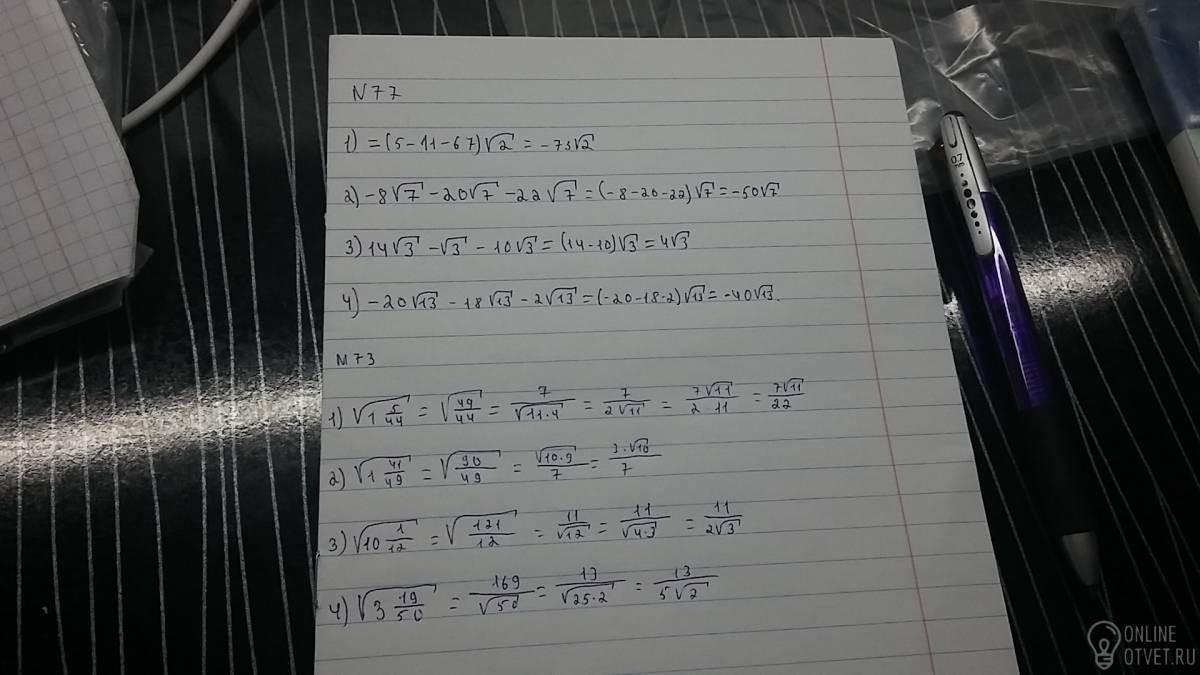 N77
1) = (5-11-67)√2 = -73√2
2) -8√7 -20√7 -22√7 = (-8-20-22)√7 = -50√7
3) 14√3 -√3 - 10√3 = (14-10)√3 = 4√3
4) -20√13 - 18√13 - 2√13 = (-20-18-2)√13 = -40√13.
N73
1) √(1 5/44) = √(49/44) = 7/√(11·4) = 7/(2√11) = 7√11/(2·11) = 7√11/22
2) √(1 41/49) = √(90/49) = √(10·9)/7 = 3·√10/7
3) √(10 1/12) = √(121/12) = 11/√12 = 11/√(4·3) = 11/(2√3)
4) √(3 19/50) = 169/√50 = 13/√(25·2) = 13/(5√2)
0.7
ONLINE
OTVET.RU